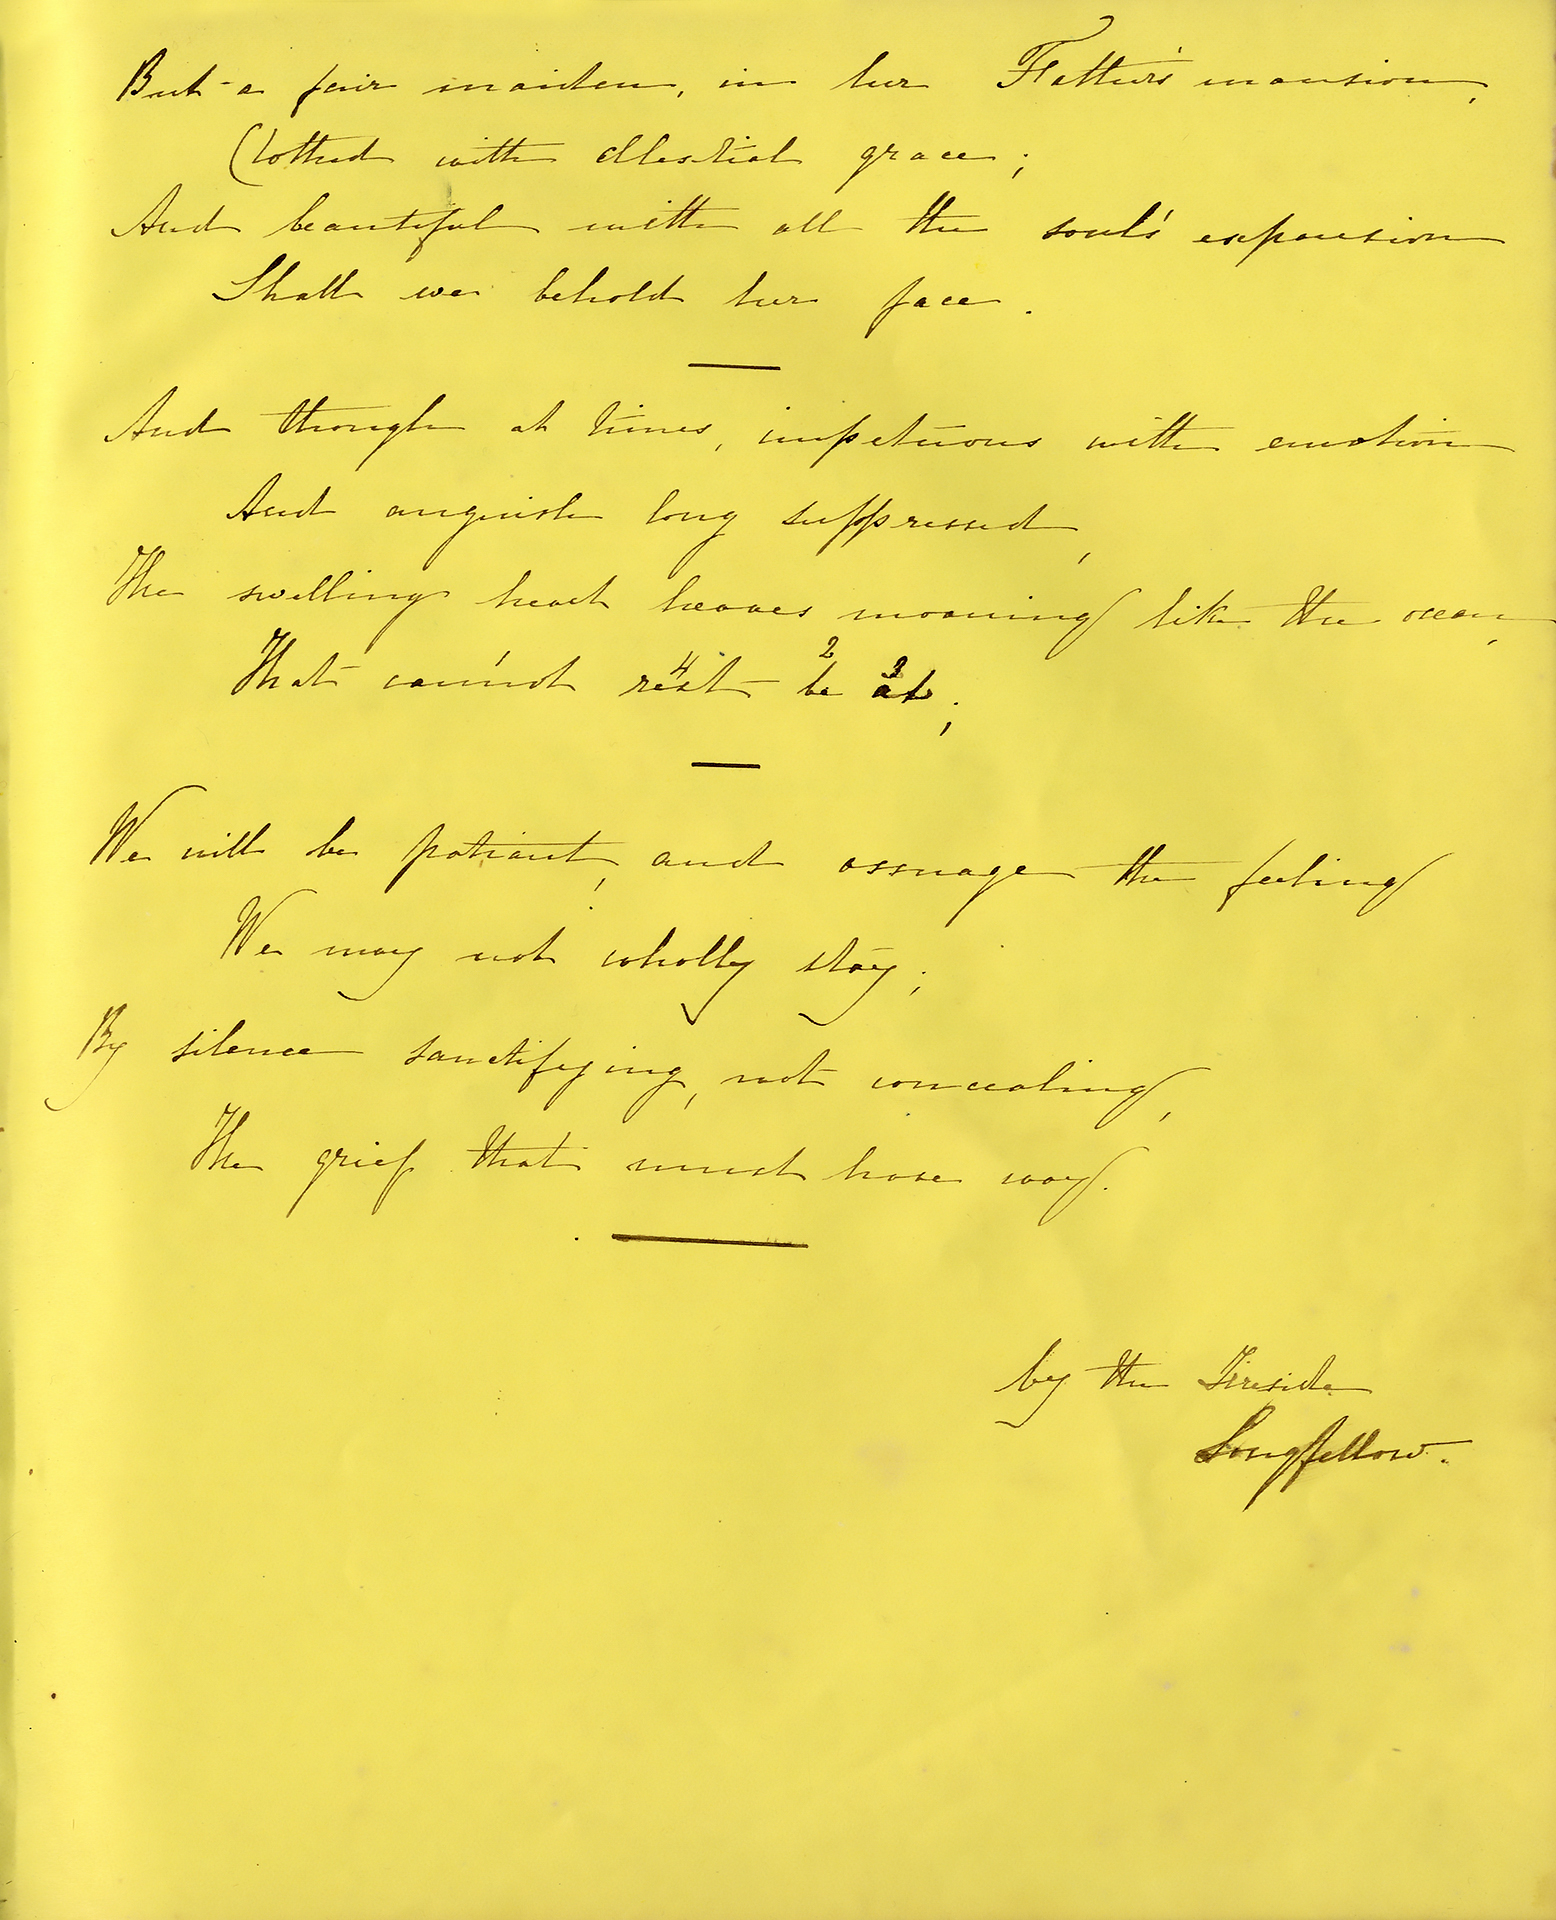 But a fair maiden, in her Father's mansion,
Clothed with celestial grace;
And beautiful with all the soul's expansion
Shall we behold her face.
And though at times, impetuous with emotion
And anguish long suppressed,
The swelling heart heaves moaning like the ocean,
That cannot rest be at;
1 4 2 3
We will be patient, and assuage the feeling
We may not wholly stay;
By silence sanctifying, not concealing,
The grief that must have way.
by the Fireside
Longfellow.